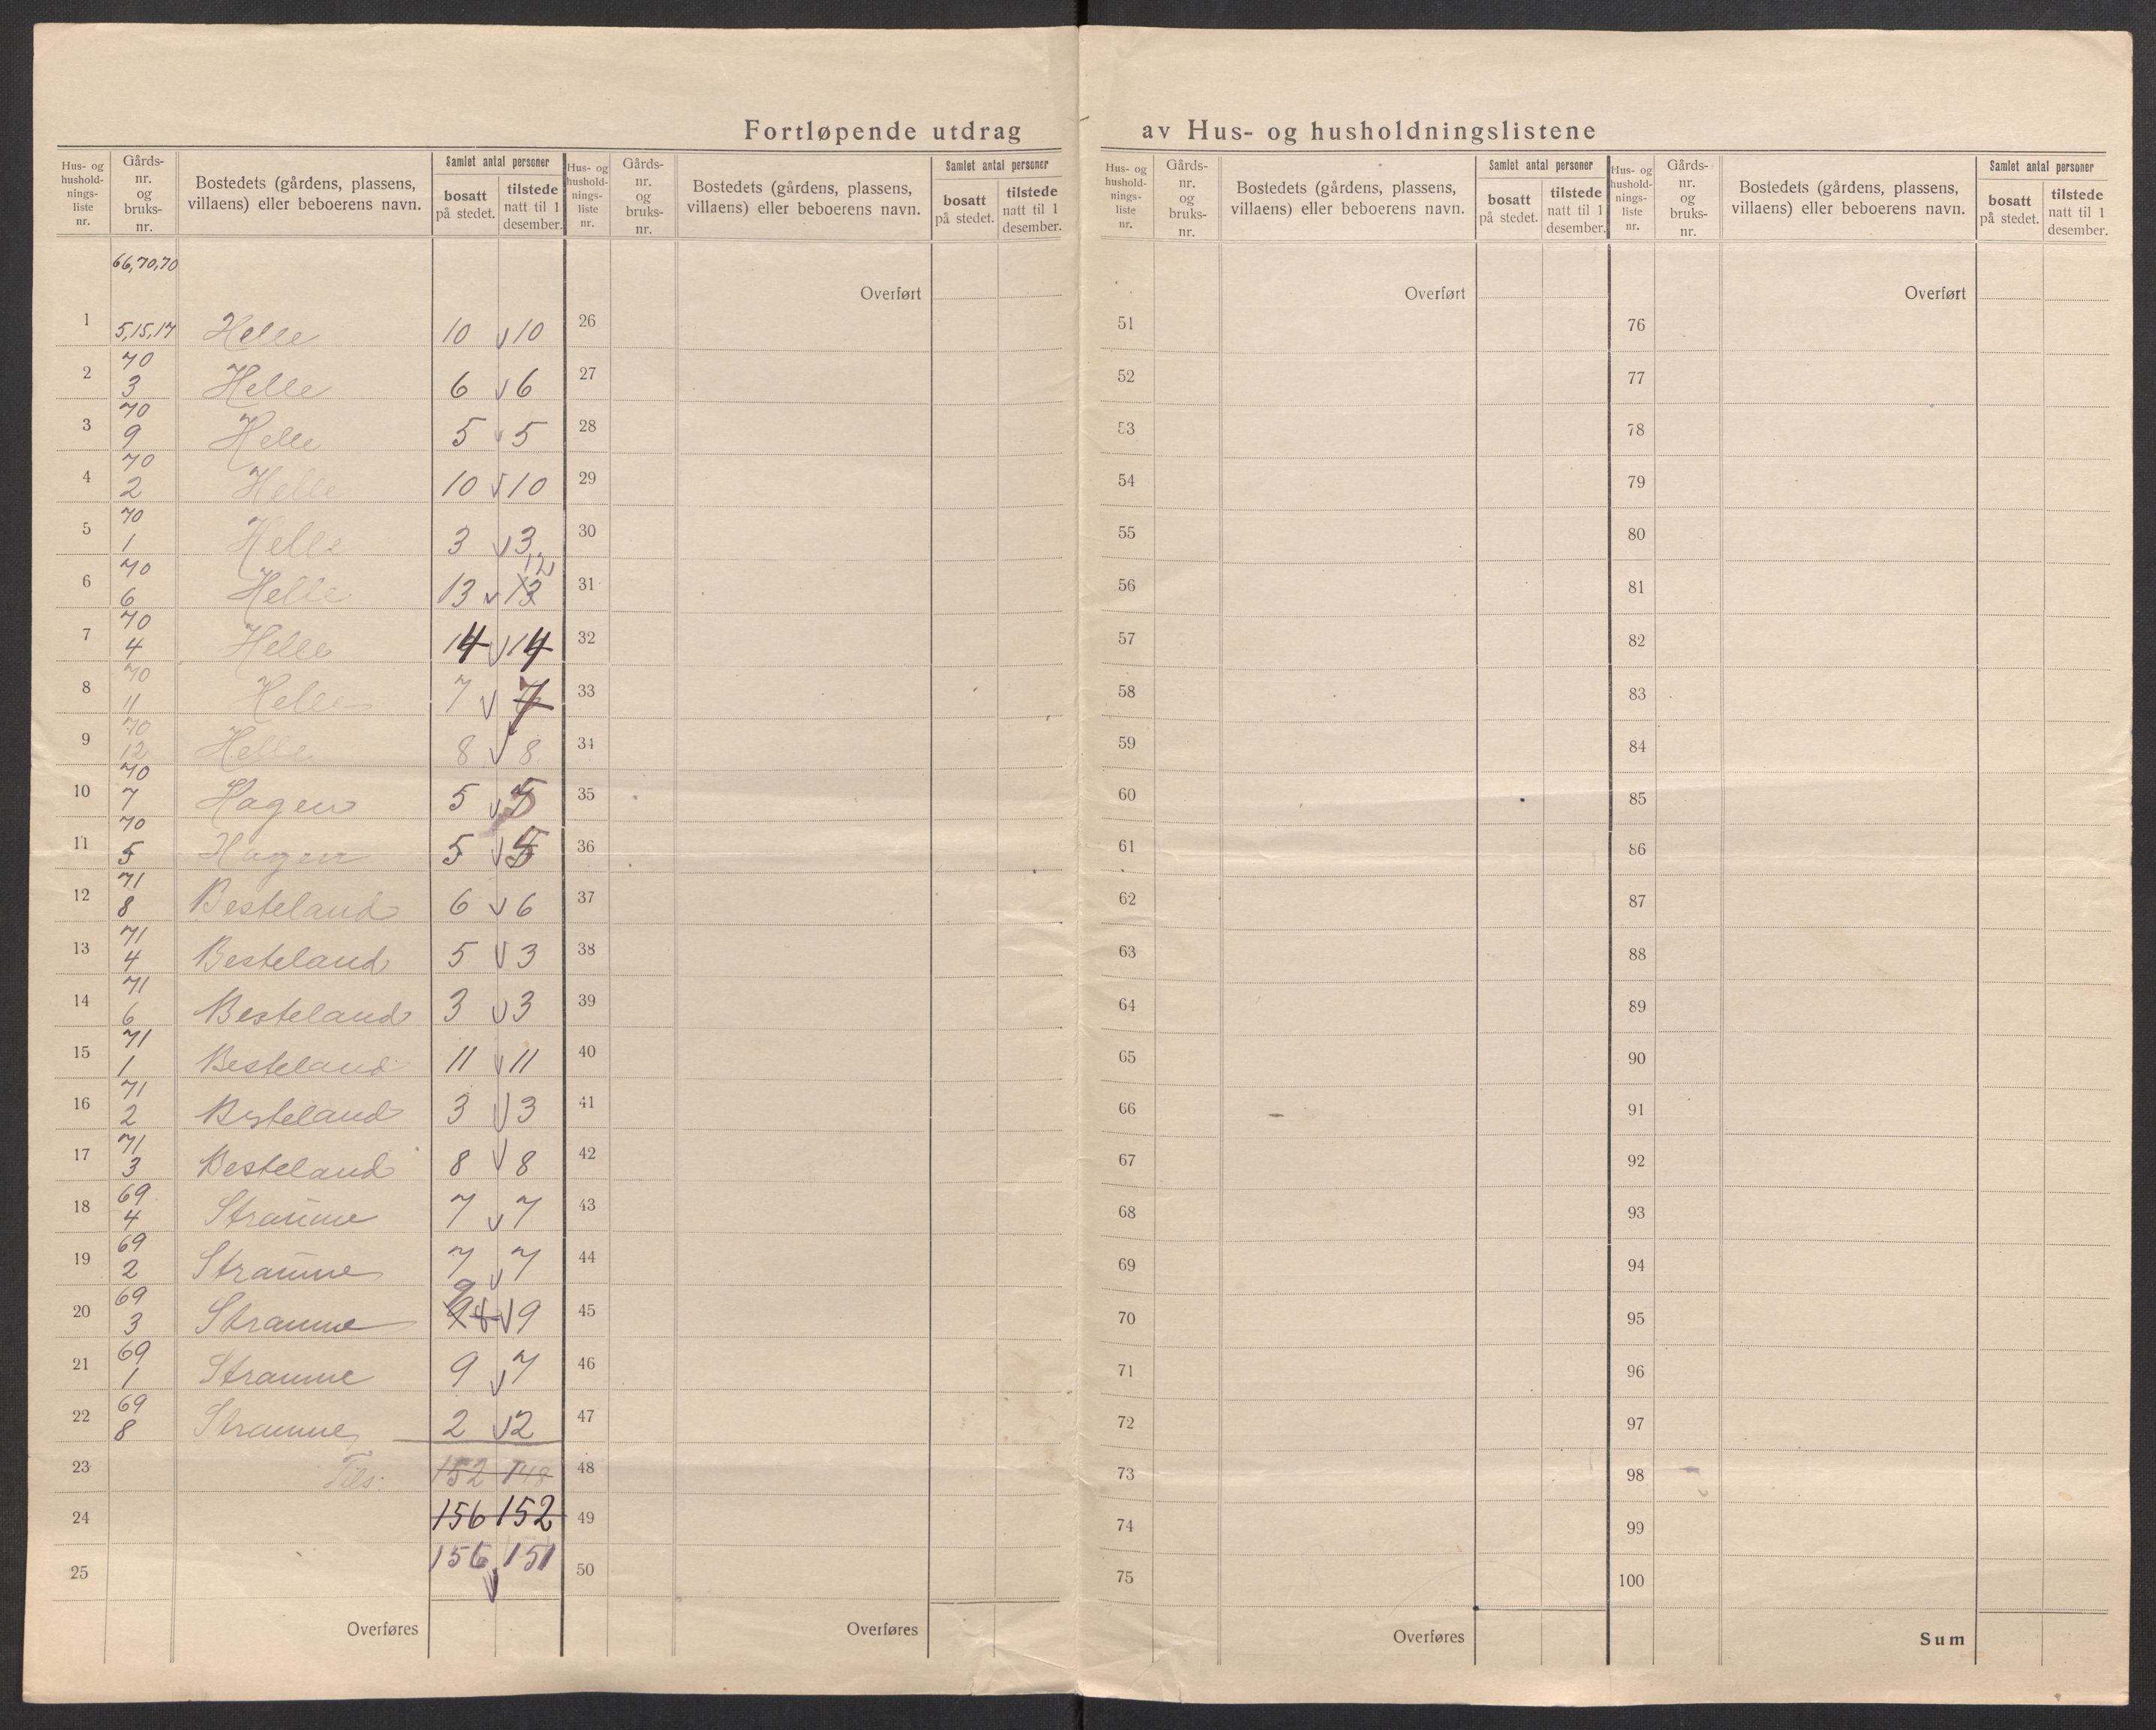 Fortløpende utdrag av Hus- og husholdningslistene
Hus- og husholdnings- liste nr. | Gårds- nr. og bruks- nr. | Bostedets (gårdens, plassens, villaens) eller beboerens navn. | Samlet antal personer | bosatt på stedet. | tilstede natt til 1 desember.
Hus- og husholdnings- liste nr. | Gårds- nr. og bruks- nr. | Bostedets (gårdens, plassens, villaens) eller beboerens navn. | Samlet antal personer | bosatt på stedet. | tilstede natt til 1 desember.
Hus- og husholdnings- liste nr. | Gårds- nr. og bruks- nr. | Bostedets (gårdens, plassens, villaens) eller beboerens navn. | Samlet antal personer | bosatt på stedet. | tilstede natt til 1 desember.
Hus- og husholdnings- liste nr. | Gårds- nr. og bruks- nr. | Bostedets (gårdens, plassens, villaens) eller beboerens navn. | Samlet antal personer | bosatt på stedet. | tilstede natt til 1 desember.
66,70,70
1 5,15,17 Helle 10 10
2 70 3 Helle 6 6
3 70 9 Helle 5 5
4 70 2 Helle 10 10
5 70 1 Helle 3 3
6 70 6 Helle 13 13 12
7 70 4 Helle 14 14
8 70 11 Helle 7 7
9 70 12 Helle 8 8
10 70 7 Hagen 5 5
11 70 5 Hagen 5 5
12 71 8 Besteland 6 6
13 71 4 Besteland 5 3
14 71 6 Besteland 3 3
15 71 1 Besteland 11 11
16 71 2 Besteland 3 3
17 71 3 Besteland 8 8
18 69 4 Straume 7 7
19 69 2 Straume 7 7
20 69 3 Straume 9 9 8 9
21 69 1 Straume 9 7
22 69 8 Straume 2 2
23 Tils: 152 148
24 156 152
25 156 151
Overføres
Overført
26
27
28
29
30
31
32
33
34
35
36
37
38
39
40
41
42
43
44
45
46
47
48
49
50
Overføres
Overført
51
52
53
54
55
56
57
58
59
60
61
62
63
64
65
66
67
68
69
70
71
72
73
74
75
Overføres
Overført
76
77
78
79
80
81
82
83
84
85
86
87
88
89
90
91
92
93
94
95
96
97
98
99
100
Sum